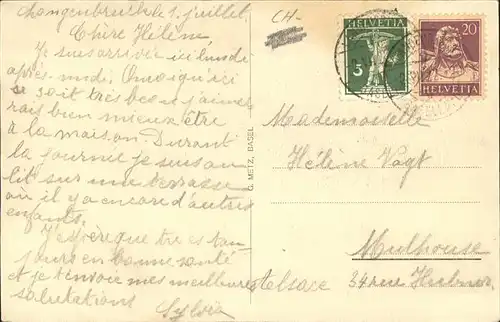 Langenbruck le 1. juillet.
Chère Hélène,
Je suis arrivée ici lundi
après-midi. Quoiqu'ici
ce soit très beau j'aime
rais bien mieux être
à la maison. Durant
la journée je suis au
lit sur une terrasse
où il y a encore d'autres
enfants.
J'espère que tu es tou
jours en bonne santé
et je t'envoie mes meilleures
salutations
Sylvie
G. METZ, BASEL
CH-
HELVETIA
5
20
HELVETIA
Mademoiselle
Hélène Vogt
Mulhouse
Alsace 34 rue